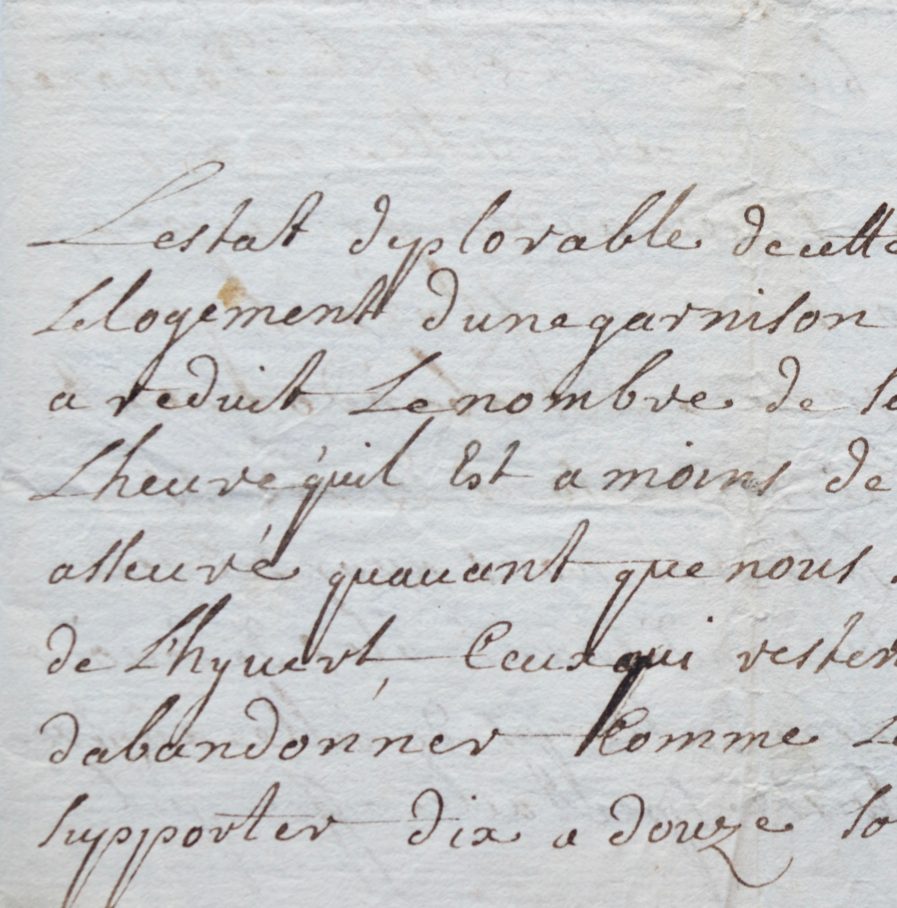 Lestat deplorable de cette
Le logement dune garnison
a reduit Le nombre de
Lheure quil Est a moins de
asseuré quauant que nous
de Lhyuert, Ceux qui rester
dabandonner Comme Le
supporter dix a douze so